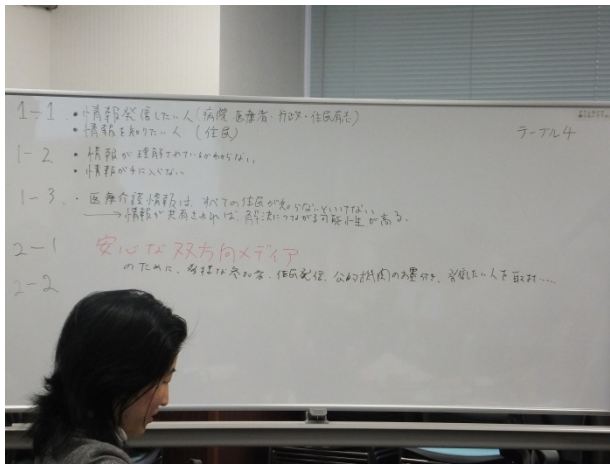 テーブル4
1-1 ・情報発信したい人(病院 医療者・行政・住民有志)
・情報を知りたい人(住民)
1-2 ・情報が理解されているかわからない
・情報が手に入らない
1-3 ・医療介護情報は、すべての住民が知らないといけない
→情報が共有されれば、解決につながる可能性が高る。
2-1 安心な双方向メディア
2-2 のために、多様な参加者、住民発信、公的機関のお墨付き、発信したい人を